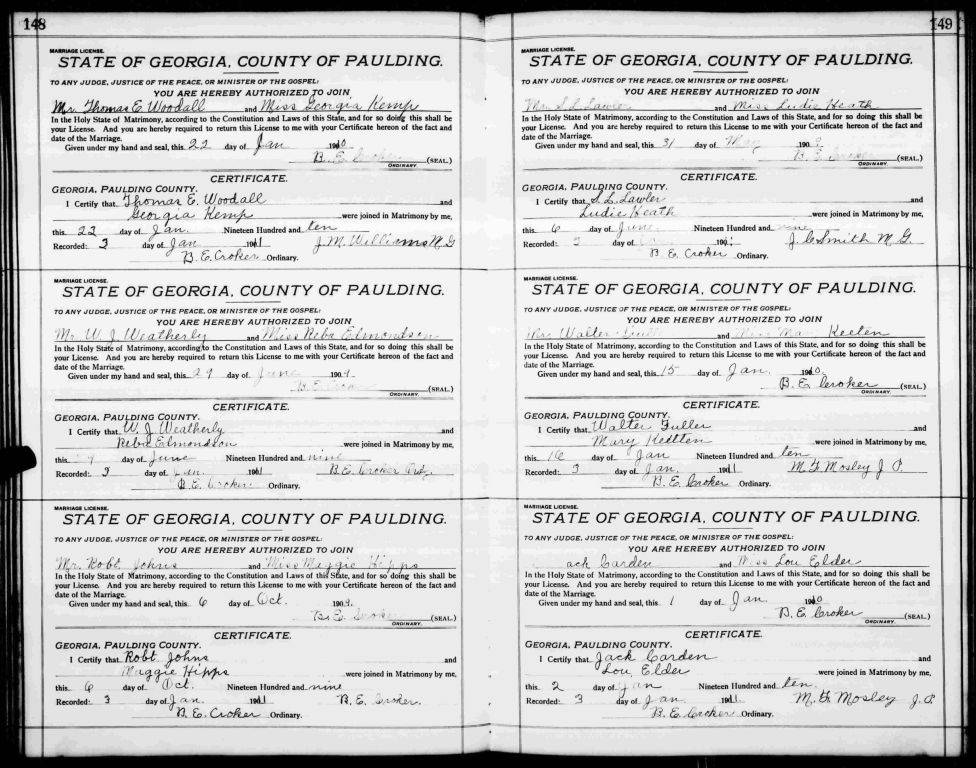 148
MARRIAGE LICENSE.
STATE OF GEORGIA, COUNTY OF PAULDING.
TO ANY JUDGE, JUSTICE OF THE PEACE, OR MINISTER OF THE GOSPEL:
YOU ARE HEREBY AUTHORIZED TO JOIN
Mr. Thomas E. Woodall and Miss Georgia Kemp
In the Holy State of Matrimony, according to the Constitution and Laws of this State, and for so doing this shall be
your License. And you are hereby required to return this License to me with your Certificate hereon of the fact and
date of the Marriage.
Given under my hand and seal, this 22 day of Jan 1910
B. E. Croker (SEAL.)
ORDINARY.
CERTIFICATE.
GEORGIA, PAULDING COUNTY.
I Certify that Thomas E. Woodall and
Georgia Kemp were joined in Matrimony by me,
this 23 day of Jan. Nineteen Hundred and ten
Recorded: 3 day of Jan 1911 J. M. Williams M G
B. E. Croker Ordinary.
MARRIAGE LICENSE.
STATE OF GEORGIA, COUNTY OF PAULDING.
TO ANY JUDGE, JUSTICE OF THE PEACE, OR MINISTER OF THE GOSPEL:
YOU ARE HEREBY AUTHORIZED TO JOIN
Mr. W. J. Weatherly and Miss Reba Elmondson
In the Holy State of Matrimony, according to the Constitution and Laws of this State, and for so doing this shall be
your License. And you are hereby required to return this License to me with your Certificate hereon of the fact and
date of the Marriage.
Given under my hand and seal, this 29 day of June 1909.
B. E. (SEAL.)
ORDINARY.
CERTIFICATE.
GEORGIA, PAULDING COUNTY.
I Certify that W. J. Weatherly and
Reba Elmondson were joined in Matrimony by me,
this day of June Nineteen Hundred and nine
Recorded: 3 day of Jan. 1911 B. E. Croker Ord.
B. E. Croker Ordinary.
MARRIAGE LICENSE.
STATE OF GEORGIA, COUNTY OF PAULDING.
TO ANY JUDGE, JUSTICE OF THE PEACE, OR MINISTER OF THE GOSPEL:
YOU ARE HEREBY AUTHORIZED TO JOIN
Mr. Robt. Johns and Miss Maggie Hipps
In the Holy State of Matrimony, according to the Constitution and Laws of this State, and for so doing this shall be
your License. And you are hereby required to return this License to me with your Certificate hereon of the fact and
date of the Marriage.
Given under my hand and seal, this 6 day of Oct. 1909.
B. E. Croker (SEAL.)
ORDINARY.
CERTIFICATE.
GEORGIA, PAULDING COUNTY.
I Certify that Robt. Johns and
Maggie Hipps were joined in Matrimony by me,
this 6 day of Oct. Nineteen Hundred and nine
Recorded: 3 day of Jan. 1911 B. E. Croker.
B. E. Croker Ordinary.
149
MARRIAGE LICENSE.
STATE OF GEORGIA, COUNTY OF PAULDING.
TO ANY JUDGE, JUSTICE OF THE PEACE, OR MINISTER OF THE GOSPEL:
YOU ARE HEREBY AUTHORIZED TO JOIN
Mr. S. L. Lawler and Miss Ludie Heath
In the Holy State of Matrimony, according to the Constitution and Laws of this State, and for so doing this shall be
your License. And you are hereby required to return this License to me with your Certificate hereon of the fact and
date of the Marriage.
Given under my hand and seal, this 31 day of May 1909.
B. E. Croker (SEAL.)
ORDINARY.
CERTIFICATE.
GEORGIA, PAULDING COUNTY.
I Certify that S. L. Lawler and
Ludie Heath were joined in Matrimony by me,
this 6 day of June Nineteen Hundred and nine
Recorded: 3 day of J. C. Smith M. G.
B. E. Croker Ordinary.
MARRIAGE LICENSE.
STATE OF GEORGIA, COUNTY OF PAULDING.
TO ANY JUDGE, JUSTICE OF THE PEACE, OR MINISTER OF THE GOSPEL:
YOU ARE HEREBY AUTHORIZED TO JOIN
Mr. Walter and Miss Keeten
In the Holy State of Matrimony, according to the Constitution and Laws of this State, and for so doing this shall be
your License. And you are hereby required to return this License to me with your Certificate hereon of the fact and
date of the Marriage.
Given under my hand and seal, this 15 day of Jan. 1910.
B. E. Croker (SEAL.)
ORDINARY.
CERTIFICATE.
GEORGIA, PAULDING COUNTY.
I Certify that Walter Fuller and
Mary were joined in Matrimony by me,
this 16 day of Jan Nineteen Hundred and ten
Recorded: 3 day of Jan. 1911 M. G. Mosley J. P.
B. E. Croker Ordinary.
MARRIAGE LICENSE.
STATE OF GEORGIA, COUNTY OF PAULDING.
TO ANY JUDGE, JUSTICE OF THE PEACE, OR MINISTER OF THE GOSPEL:
YOU ARE HEREBY AUTHORIZED TO JOIN
ack Carden and Miss Lou Elder
In the Holy State of Matrimony, according to the Constitution and Laws of this State, and for so doing this shall be
your License. And you are hereby required to return this License to me with your Certificate hereon of the fact and
date of the Marriage.
Given under my hand and seal, this 1 day of Jan 1910
B. E. Croker (SEAL.)
ORDINARY.
CERTIFICATE.
GEORGIA, PAULDING COUNTY.
I Certify that Jack Carden and
Lou Elder were joined in Matrimony by me,
this 2 day of Jan Nineteen Hundred and ten.
Recorded: 3 day of Jan 1911. M. G. Mosley J. P.
B. E. Croker Ordinary.